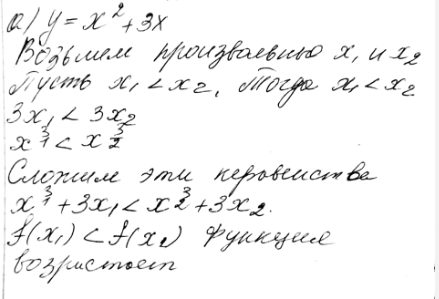 а) y = x² + 3x
Возьмем произвольно x₁ и x₂
Пусть x₁ < x₂, Тогда x₁ < x₂
3x₁ < 3x₂
x₁³ < x₂³
Сложим эти неравенства
x₁³ + 3x₁ < x₂³ + 3x₂.
f(x₁) < f(x₂) функция
возрастает